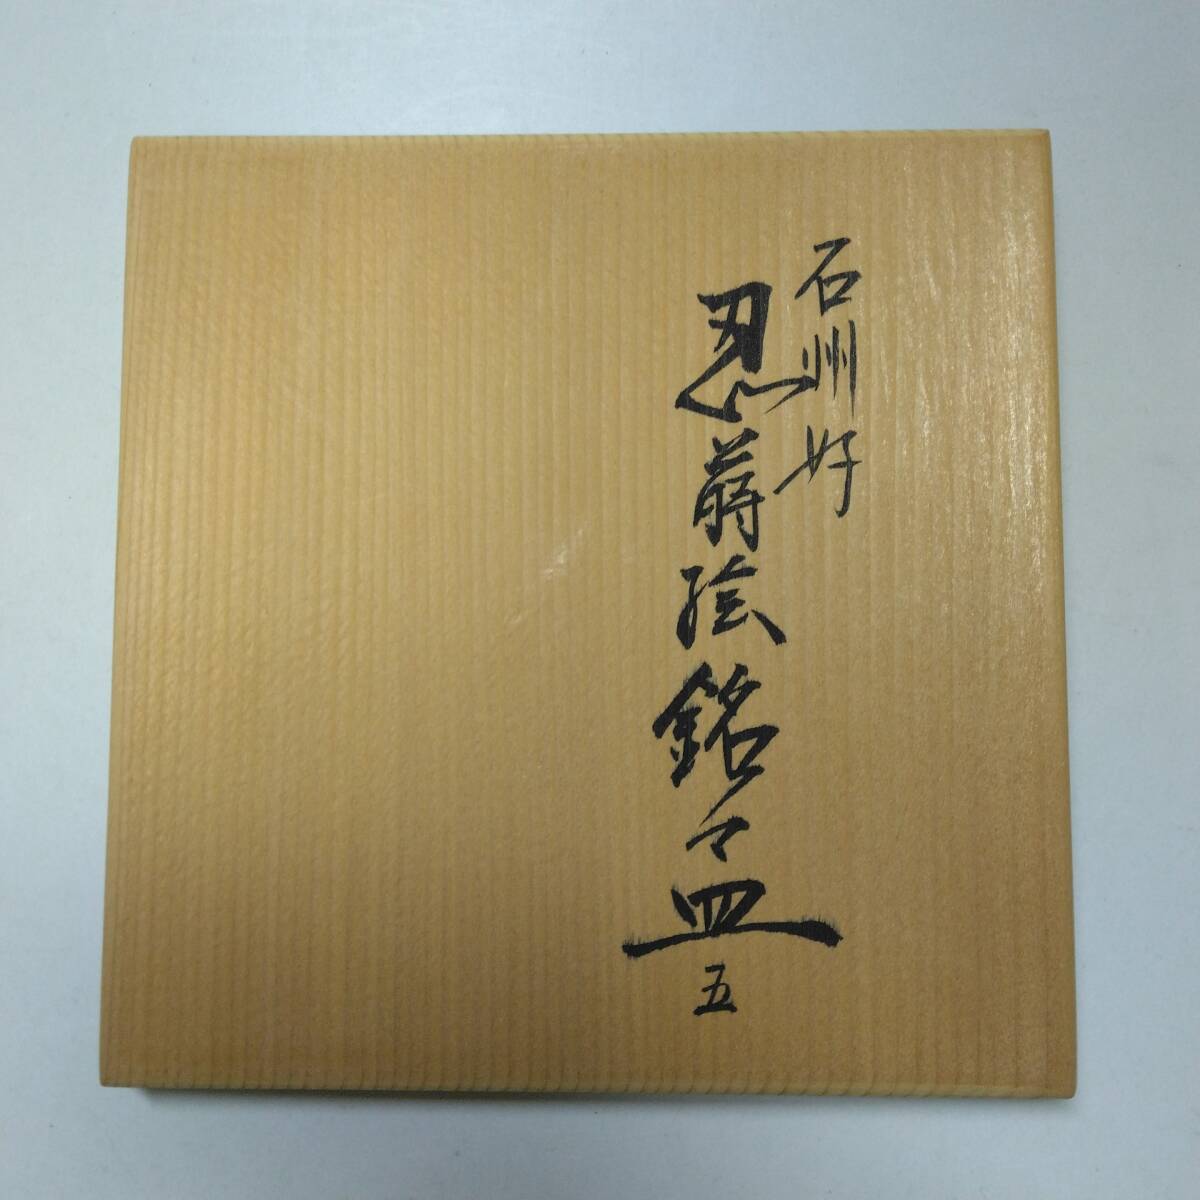 石州好
忍蒔絵銘々皿
五